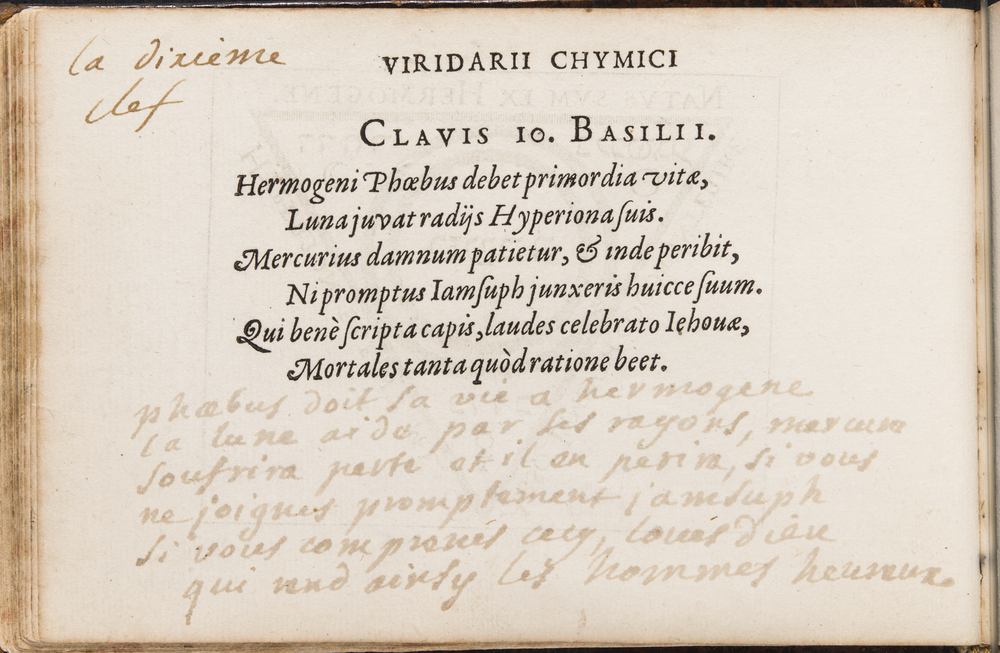 la dixième
clef
VIRIDARII CHYMICI
CLAVIS 10. BASILII.
Hermogeni Phœbus debet primordia vitæ,
Luna juvat radijs Hyperiona ſuis.
Mercurius damnum patietur, & inde peribit,
Ni promptus Iamſuph junxeris huicce ſuum.
Qui benè ſcripta capis, laudes celebrato Iehouæ,
Mortales tanta quòd ratione beet.
phœbus doit sa vie a hermogene
la lune aide par ses rayons, mercure
soufrira perte et il en perira, si vous
ne joignes promptement jamsuph
si vous comprenés cecy, loués dieu
qui rend ainsy les hommes heureux.